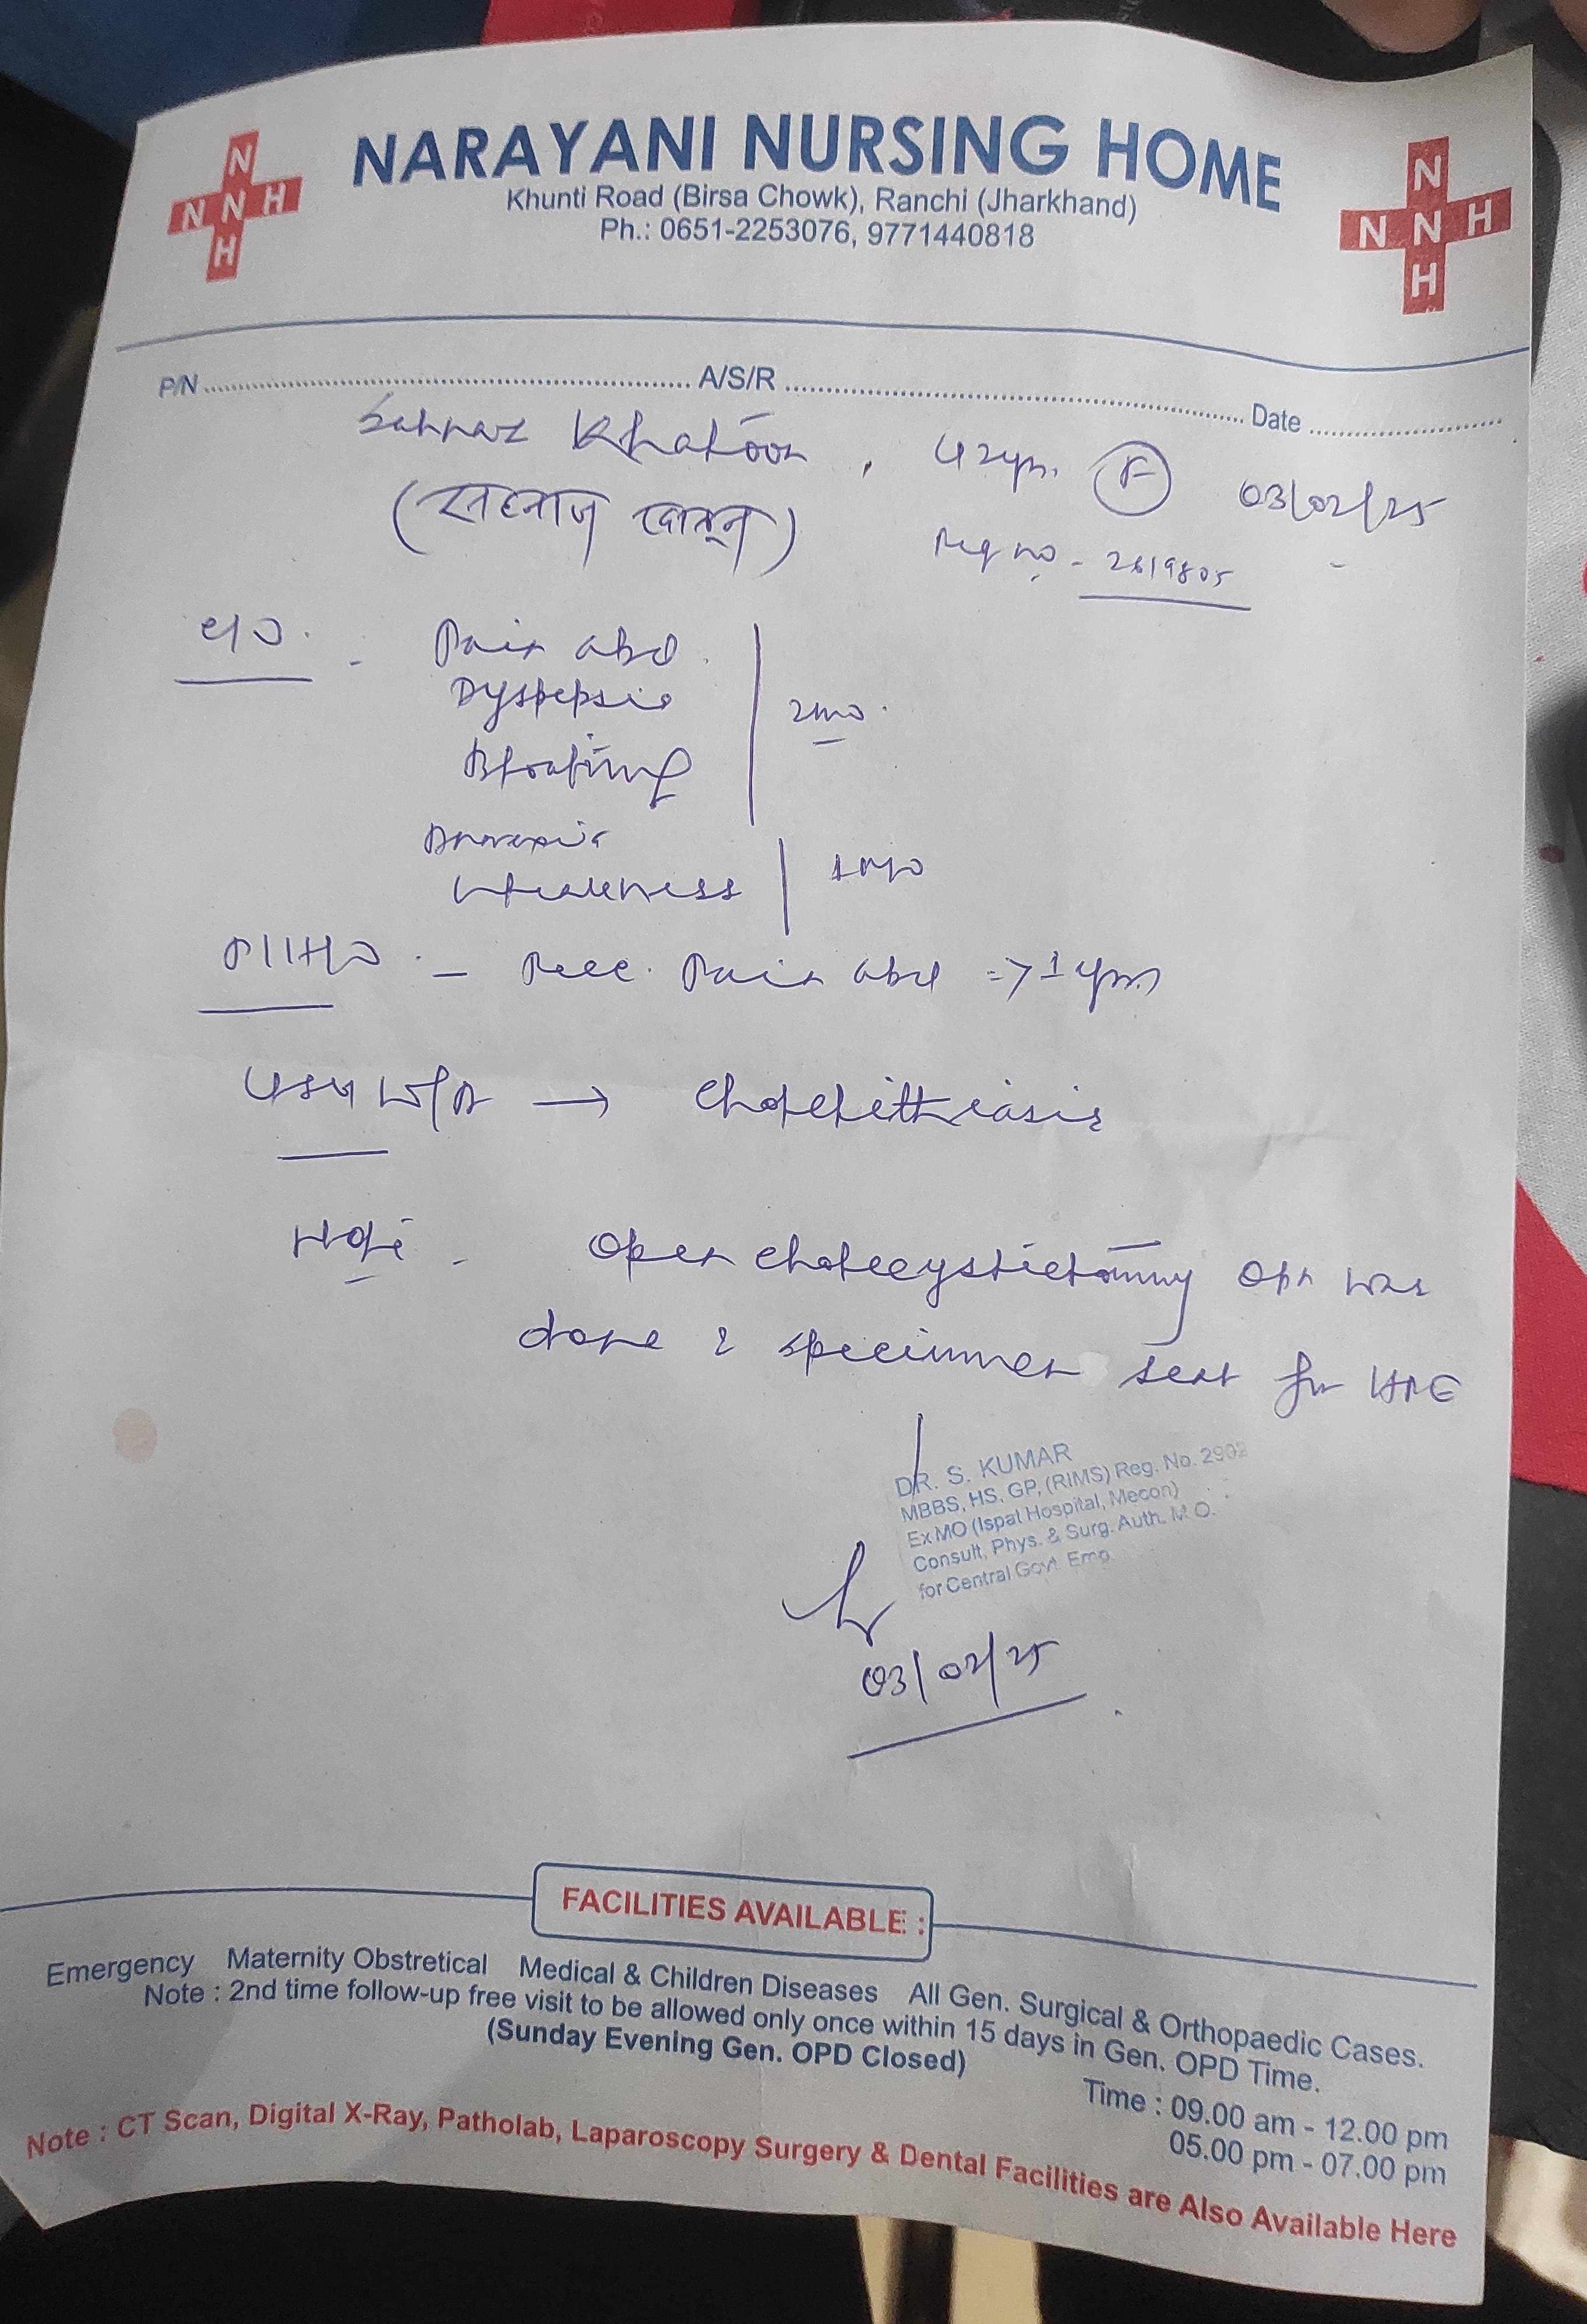 NARAYANI NURSING HOME
Khunti Road (Birsa Chowk), Ranchi (Jharkhand)
Ph.: 0651-2253076, 9771440818
N
N N H
H
N
N N H
H
P/N ........ A/S/R ........ Date ........
Sahnaz Khatoon, 42yrs. F 03/02/25
(सहनाज खातून)
Reg no - 2619805
C/O. - Pain abd.
Dyspepsia
Bloating
2mo.
Anorexia
Weakness
1mo
- Rec. Pain abd => 1 yrs.
USG W/A → Cholelithiasis
- Open Cholecystictomy Opn was
done & specimen sent for HPE
DR. S. KUMAR
MBBS, HS, GP, (RIMS) Reg. No. 2902
Ex MO (Ispat Hospital, Mecon)
Consult, Phys. & Surg. Auth. M.O.
for Central Govt. Emp.
03/02/25
FACILITIES AVAILABLE :
Emergency Maternity Obstretical Medical & Children Diseases All Gen. Surgical & Orthopaedic Cases.
Note : 2nd time follow-up free visit to be allowed only once within 15 days in Gen. OPD Time.
(Sunday Evening Gen. OPD Closed)
Time : 09.00 am - 12.00 pm
05.00 pm - 07.00 pm
Note : CT Scan, Digital X-Ray, Patholab, Laparoscopy Surgery & Dental Facilities are Also Available Here